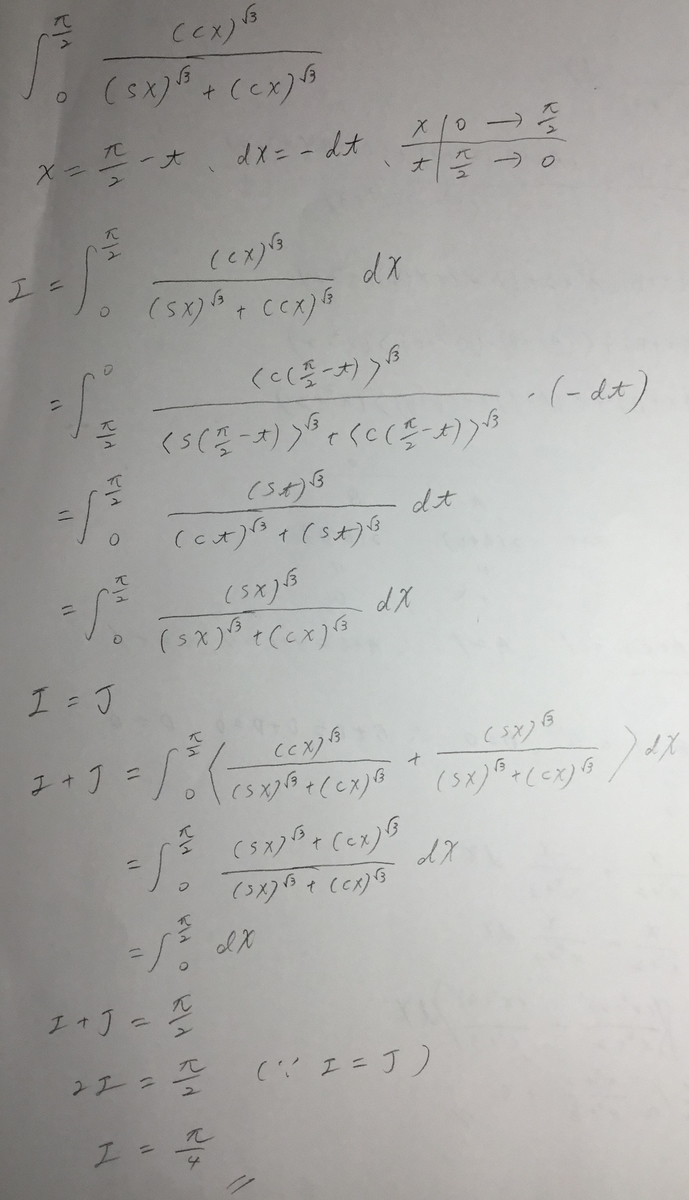 ∫₀^{π/2} (cx)^{√3} / ((sx)^{√3} + (cx)^{√3})
x = π/2 - t、dx = -dt、 x | 0 → π/2
t | π/2 → 0
I = ∫₀^{π/2} (cx)^{√3} / ((sx)^{√3} + (cx)^{√3}) dx
= ∫_{π/2}^{0} 〈c(π/2 - t)〉^{√3} / (〈s(π/2 - t)〉^{√3} + 〈c(π/2 - t)〉^{√3}) · (-dt)
= ∫₀^{π/2} (st)^{√3} / ((ct)^{√3} + (st)^{√3}) dt
= ∫₀^{π/2} (sx)^{√3} / ((sx)^{√3} + (cx)^{√3}) dx
I = J
I + J = ∫₀^{π/2} 〈(cx)^{√3} / ((sx)^{√3} + (cx)^{√3}) + (sx)^{√3} / ((sx)^{√3} + (cx)^{√3})〉 dx
= ∫₀^{π/2} ((sx)^{√3} + (cx)^{√3}) / ((sx)^{√3} + (cx)^{√3}) dx
= ∫₀^{π/2} dx
I + J = π/2
2I = π/2 (∵ I = J)
I = π/4